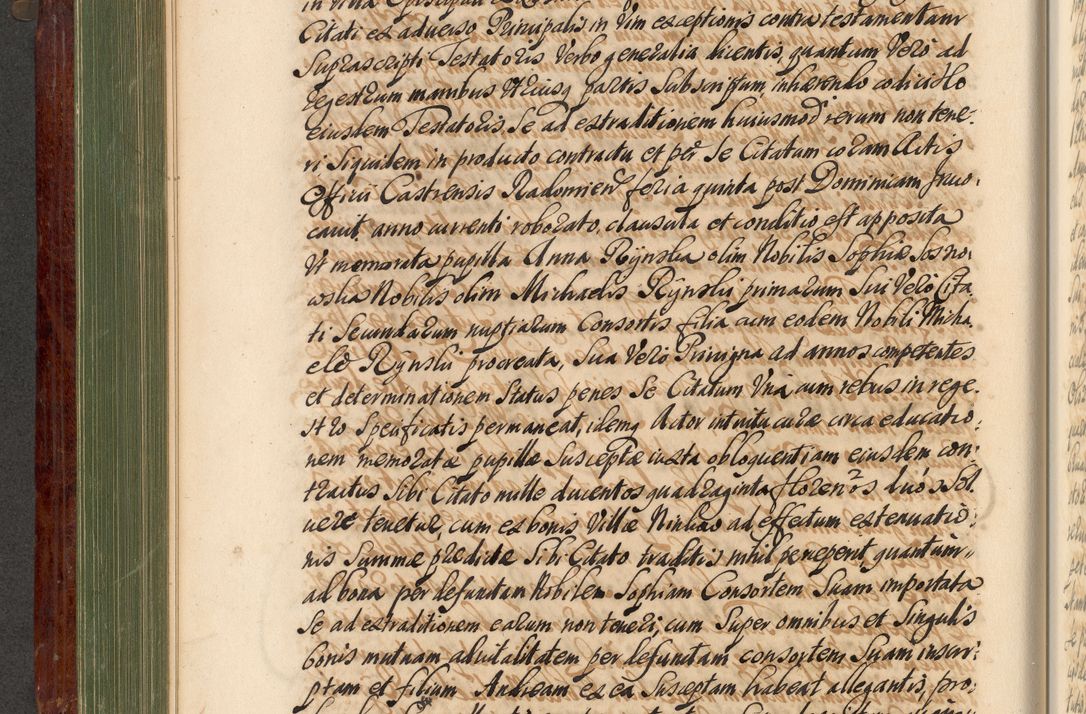 Citati ex adverso Principalis in Vim exceptionis contra testamentum
Suprascripti Testatoris Verbo generalia dicentis, quantum Vero ad
regestrum manibus Utriusq partis Subscriptum, inhærendo codicillo
eiusdem Testatoris, Se ad extraditionem huiusmodi rerum non tene:
ri Siquidem in producto contractu et per Se Citatum coram Actis
Officii Castrensis Radomien feria quinta post Dominicam Invo:
cavit anno currenti roborato, clausula et conditio est apposita
Ut memorata pupilla Anna Rÿnska olim Nobilis Sophiæ Sosno:
wska Nobilis olim Michaelis Rÿnskij primarum Sui Vero Cita
ti Secundarum nuptiarum Consortis filia cum eodem Nobili Micha
ele Rÿnski procreata, Sua Vero Privigna ad annos competentes
et determinationem Status penes Se Citatum Una cum rebus in rege:
stro Specificatis permaneat, idemq Actor intuitu curæ circa educatio:
nem memoratæ pupillæ Susceptæ iuxta obloquentiam eiusdem con:
tractus Sibi Citato mille ducentos quadraginta florenos duos Sol:
vere tenetur, cum ex bonis Villæ Ninkao ad effectum extenuatio:
nis Summæ prædictæ Sibi Citato traditis nihil perceperit quantum
ad bona per defunctam Nobilem Sophiam Consortem Suam importata
Se ad extraditionem earum non teneri, cum Super omnibus et Singulis
bonis mutuam advitalitatem per defunctam consortem Suam inscri:
ptam et filium Andream ex ea Susceptam habeat allegantis, pro: